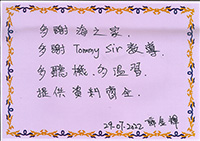 多謝海之家.
多謝 Tommy Sir 教導.
多聽機.多溫習.
提供資料齊全.
29-07-2022